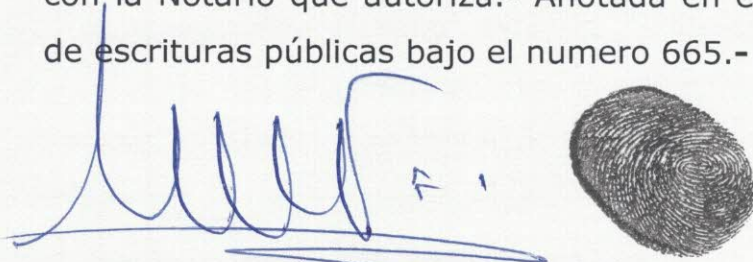 con la Notario que autoriza. Anotada en e
de escrituras públicas bajo el numero 665.-